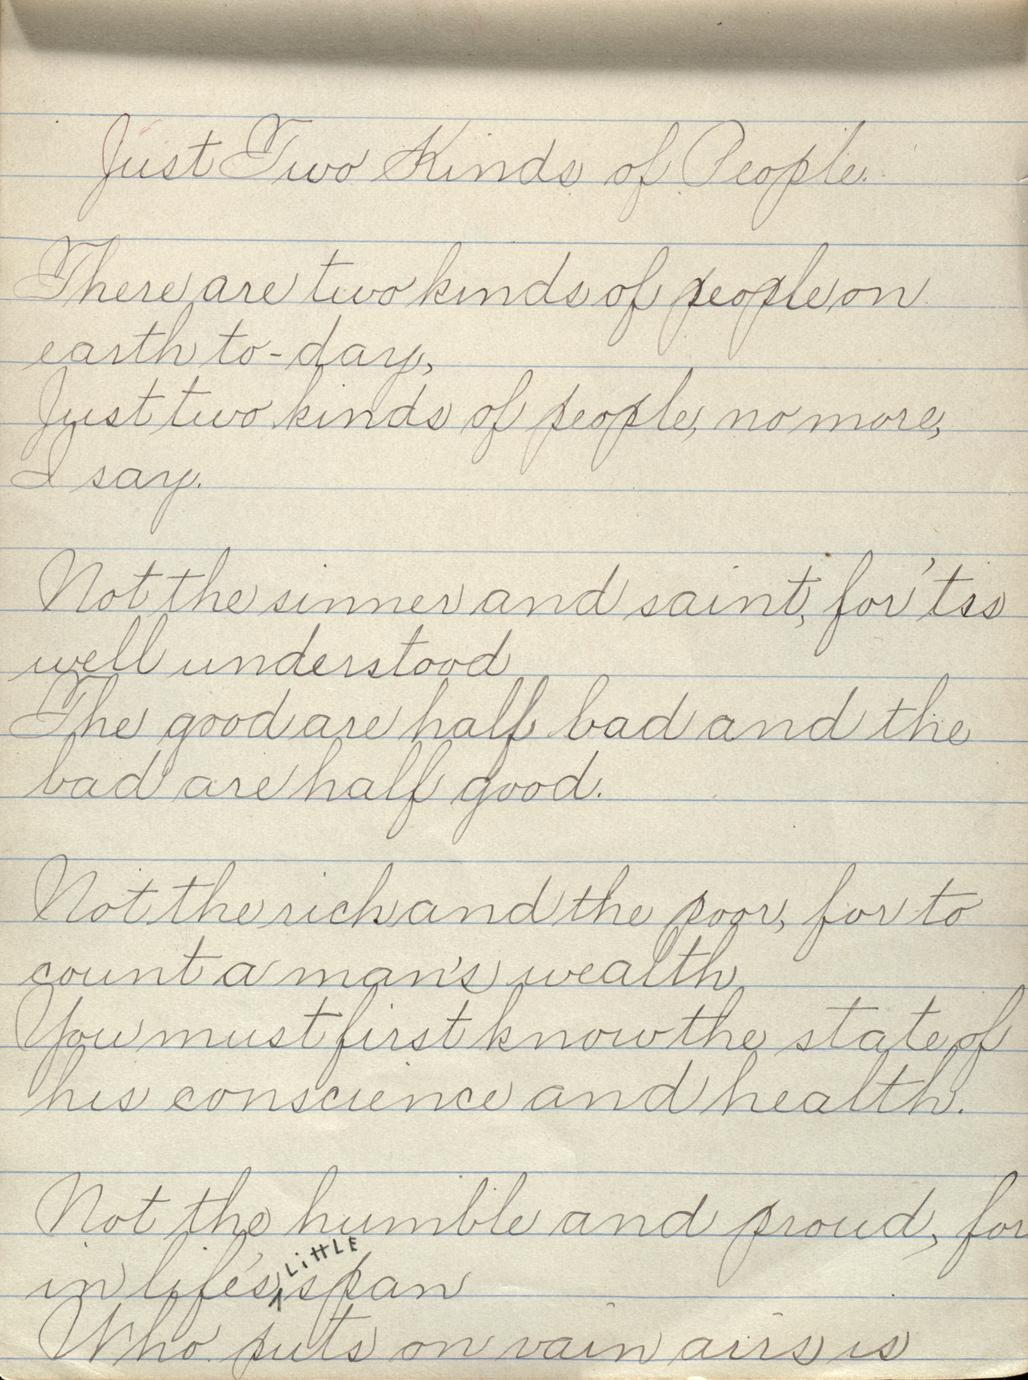 Just Two Kinds of People.
There are two kinds of people on
earth to-day,
Just two kinds of people, no more,
I say.
Not the sinner and saint, for 'tis
well understood
The good are half bad and the
bad are half good.
Not the rich and the poor, for to
count a man's wealth
You must first know the state of
his conscience and health.
Not the humble and proud, for
in life's LiTTLE span
Who puts on vain airs is